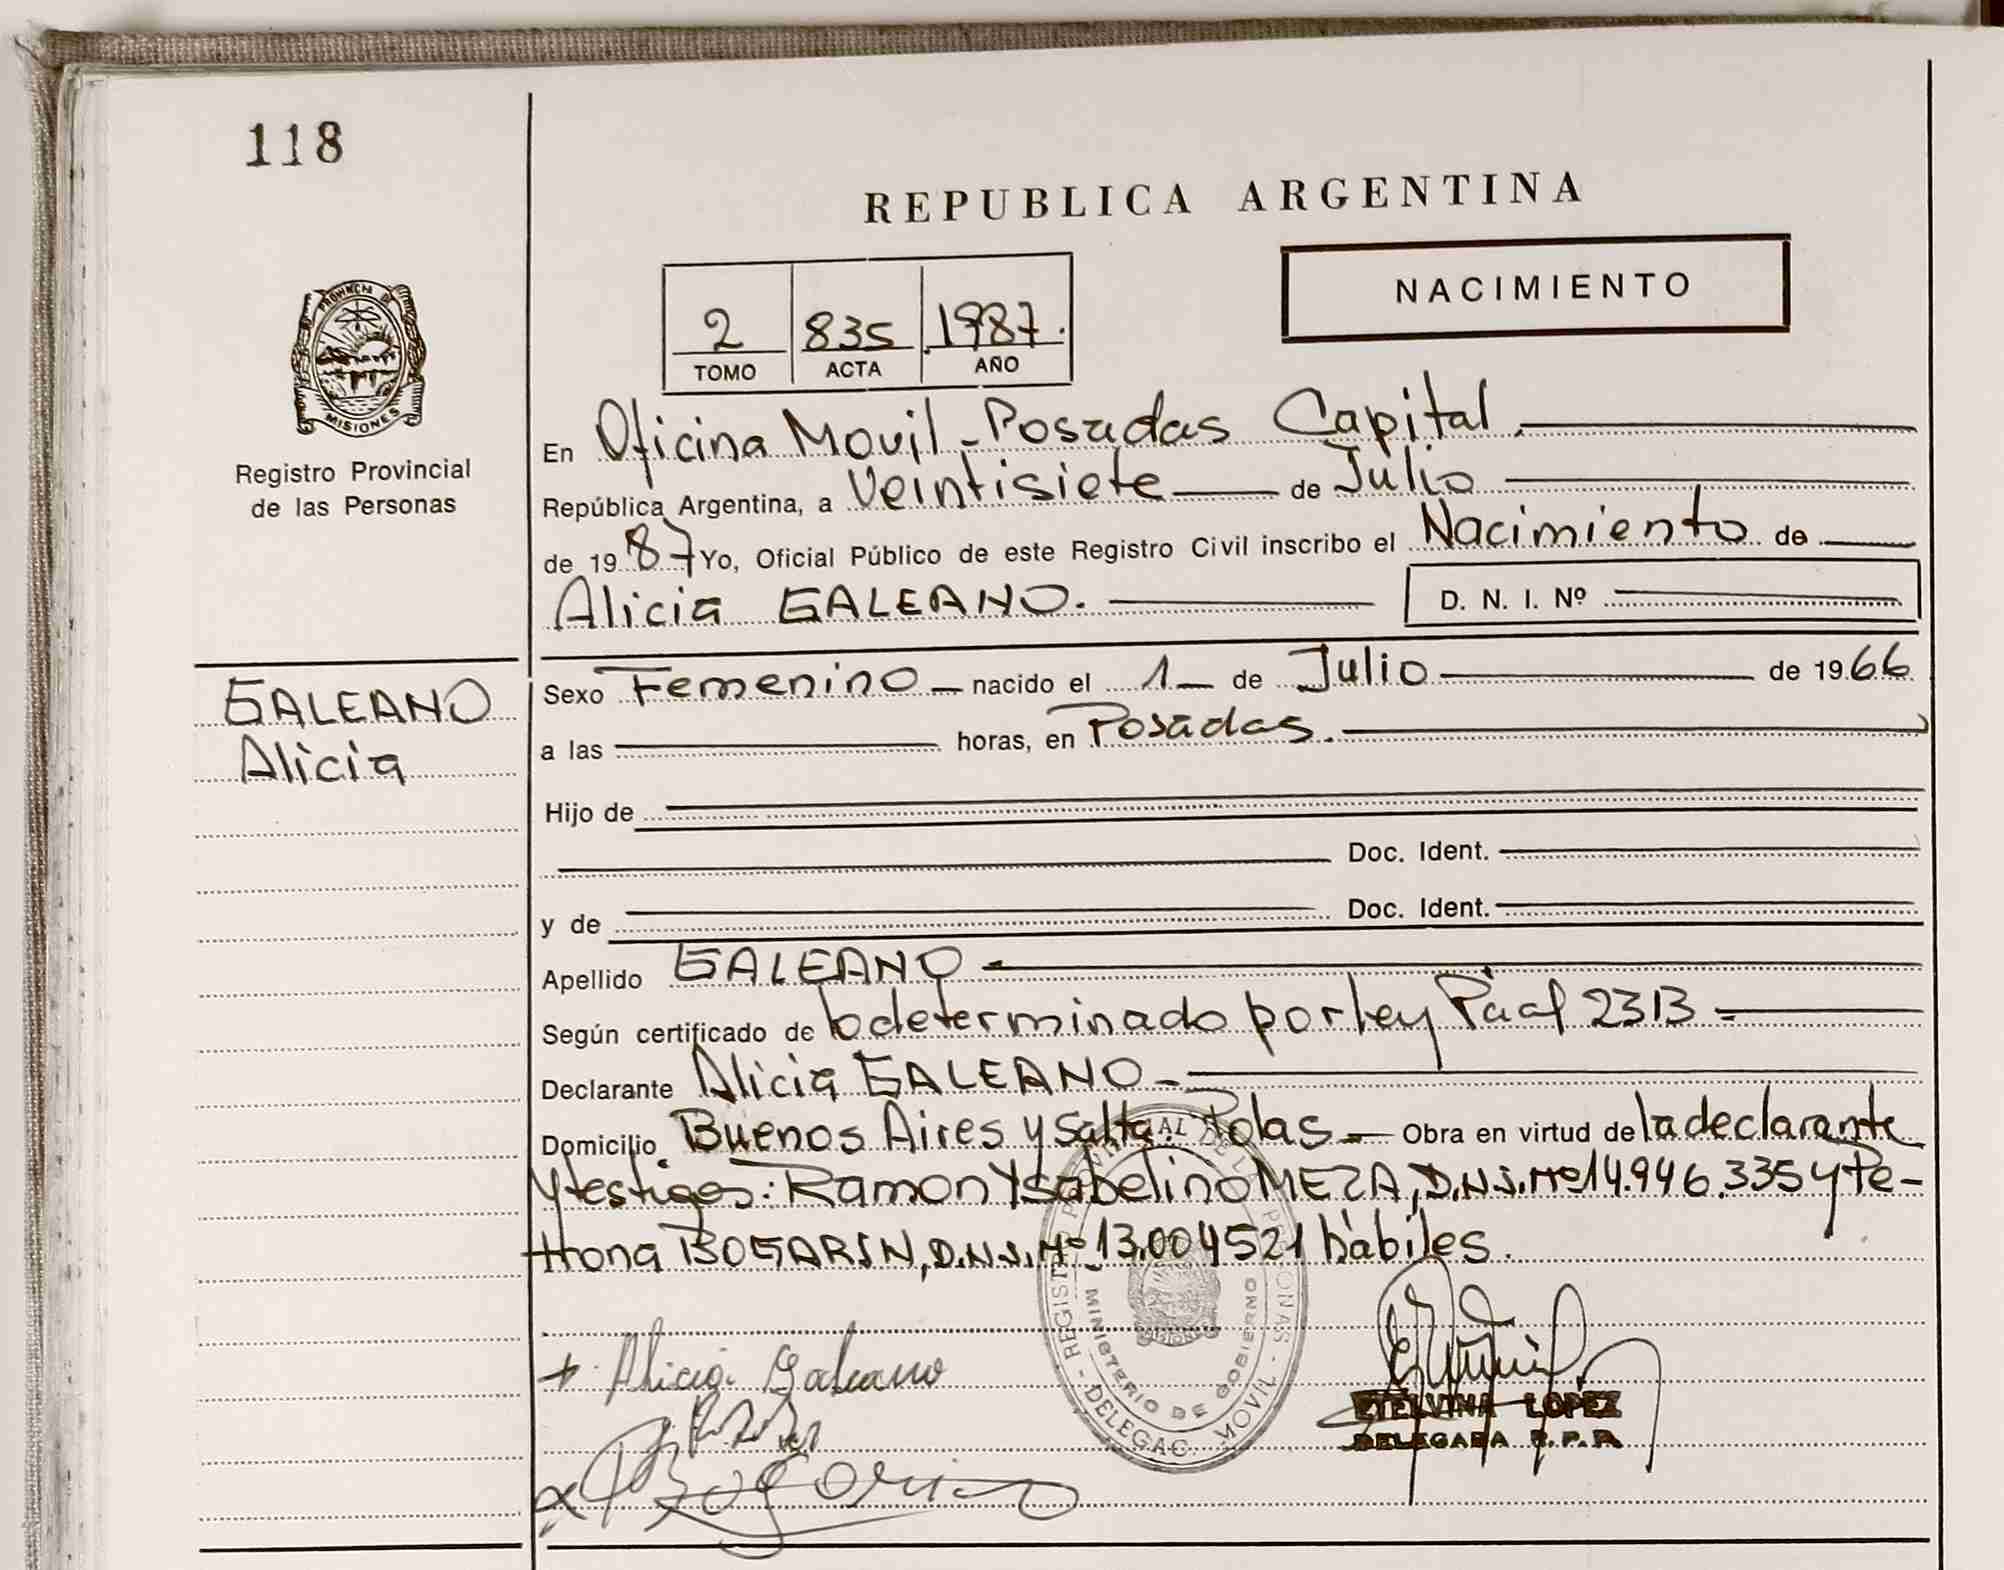 118
REPUBLICA ARGENTINA
NACIMIENTO
2 835 1987.
TOMO ACTA AÑO
PROVINCIA DE
MISIONES
Registro Provincial
de las Personas
En Oficina Movil - Posadas Capital.
República Argentina, a Veintisiete de Julio
de 1987 Yo, Oficial Público de este Registro Civil inscribo el Nacimiento de
Alicia GALEANO. D. N. I. Nº
GALEANO
Alicia
Sexo Femenino nacido el 1 de Julio de 1966
a las horas, en Posadas.
Hijo de
Doc. Ident.
y de Doc. Ident.
Apellido GALEANO
Según certificado de lo determinado por ley 2313
Declarante Alicia GALEANO
Domicilio Buenos Aires y Salta. Pdas Obra en virtud de la declarante
y testigos: Ramon Ysabelino MEZA, D.N.I. Nº 14.946.335 y Pe-
trona BOGARIN, D.N.I. Nº 13.004521 hábiles.
REGISTRO PROVINCIAL DE LAS PERSONAS - DELEGAC. MOVIL -
MINISTERIO DE GOBIERNO
Alicia Galeano
ETELVINA LOPEZ
DELEGADA R.P.P.
Bogarin